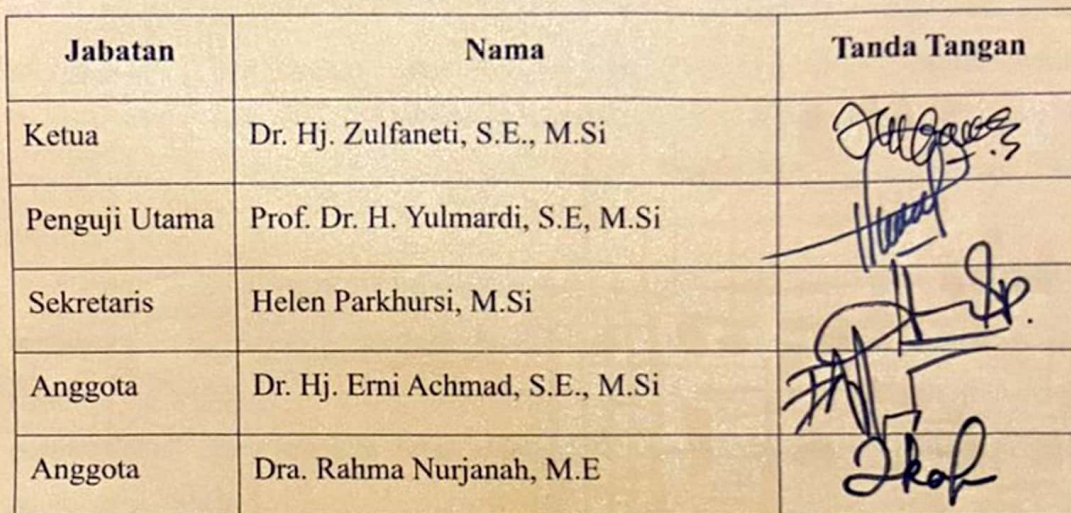 Jabatan Nama Tanda Tangan
Ketua Dr. Hj. Zulfaneti, S.E., M.Si
Penguji Utama Prof. Dr. H. Yulmardi, S.E, M.Si
Sekretaris Helen Parkhursi, M.Si
Anggota Dr. Hj. Erni Achmad, S.E., M.Si
Anggota Dra. Rahma Nurjanah, M.E